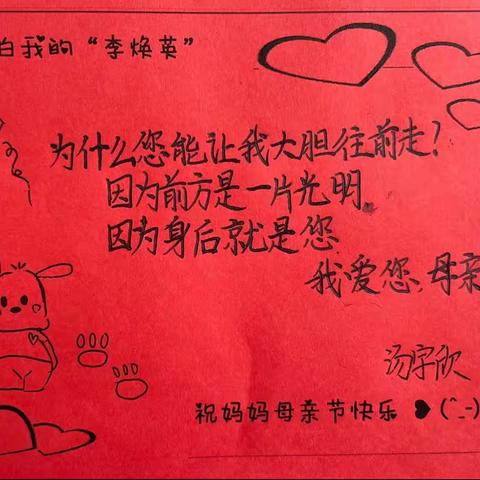 白我的“李焕英”
为什么您能让我大胆往前走?
因为前方是一片光明。
因为身后就是您
我爱您,母亲
汤宇欣
祝妈妈母亲节快乐 ❥(^_-)